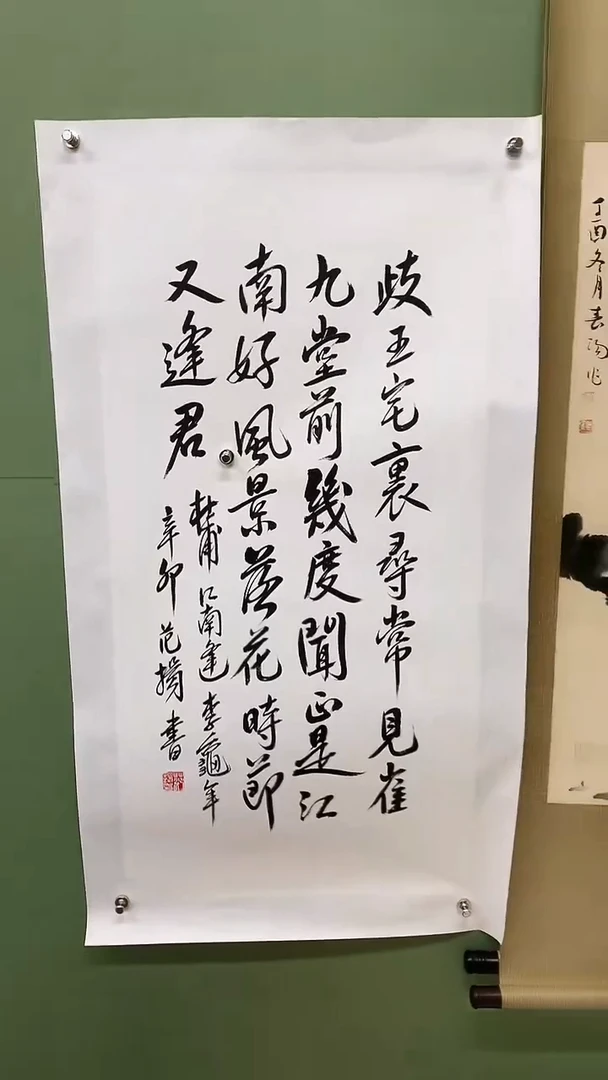 歧王宅裏尋常見崔
九堂前幾度聞正是江
南好風景落花時節
又逢君
杜甫江南逢李龜年
辛卯范揚書
丁酉冬月春陽作